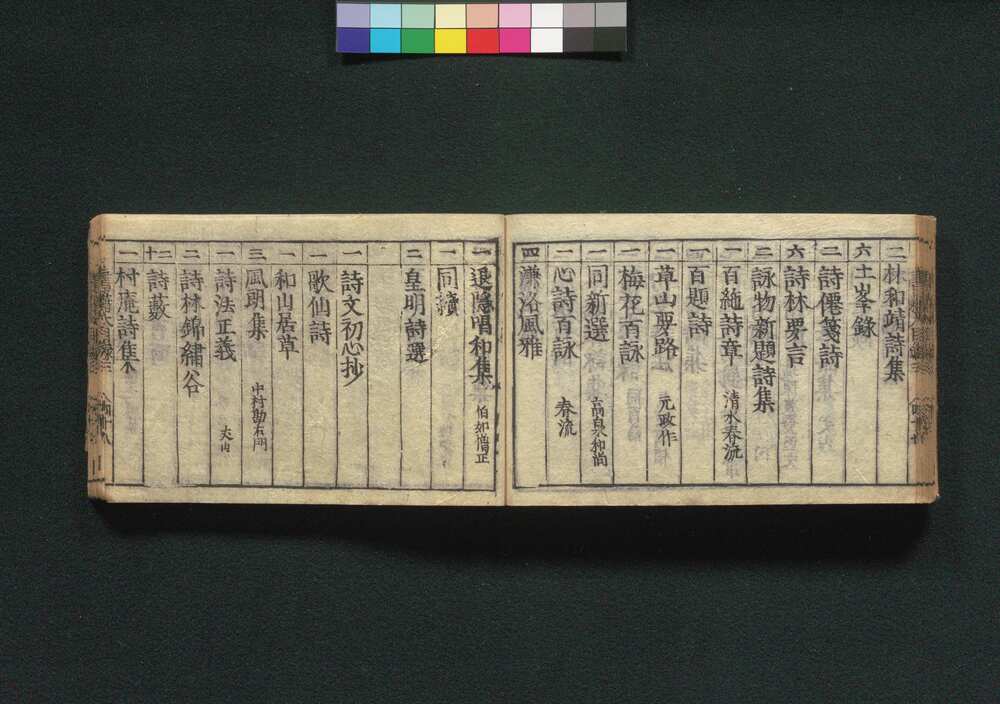 二 林和靖詩集
六 土峯録
二 詩僊箋詩
六 詩林要言
二 詠物新題詩集
一 百絶詩章 清水春流
一 百題詩
一 草山要路 元政作
一 梅花百詠
一 同新選 高泉和尚
一 心詩百詠 春流
四 濂洛風雅
二 退隱唱和集 伯如僧正
一 同續
二 皇明詩選
一 詩文初心抄
一 歌仙詩
一 和山居草
三 風朗集 中村勘右門
一 詩法正義 丈山
二 詩林錦繍谷
十二 詩藪
一 村庵詩集